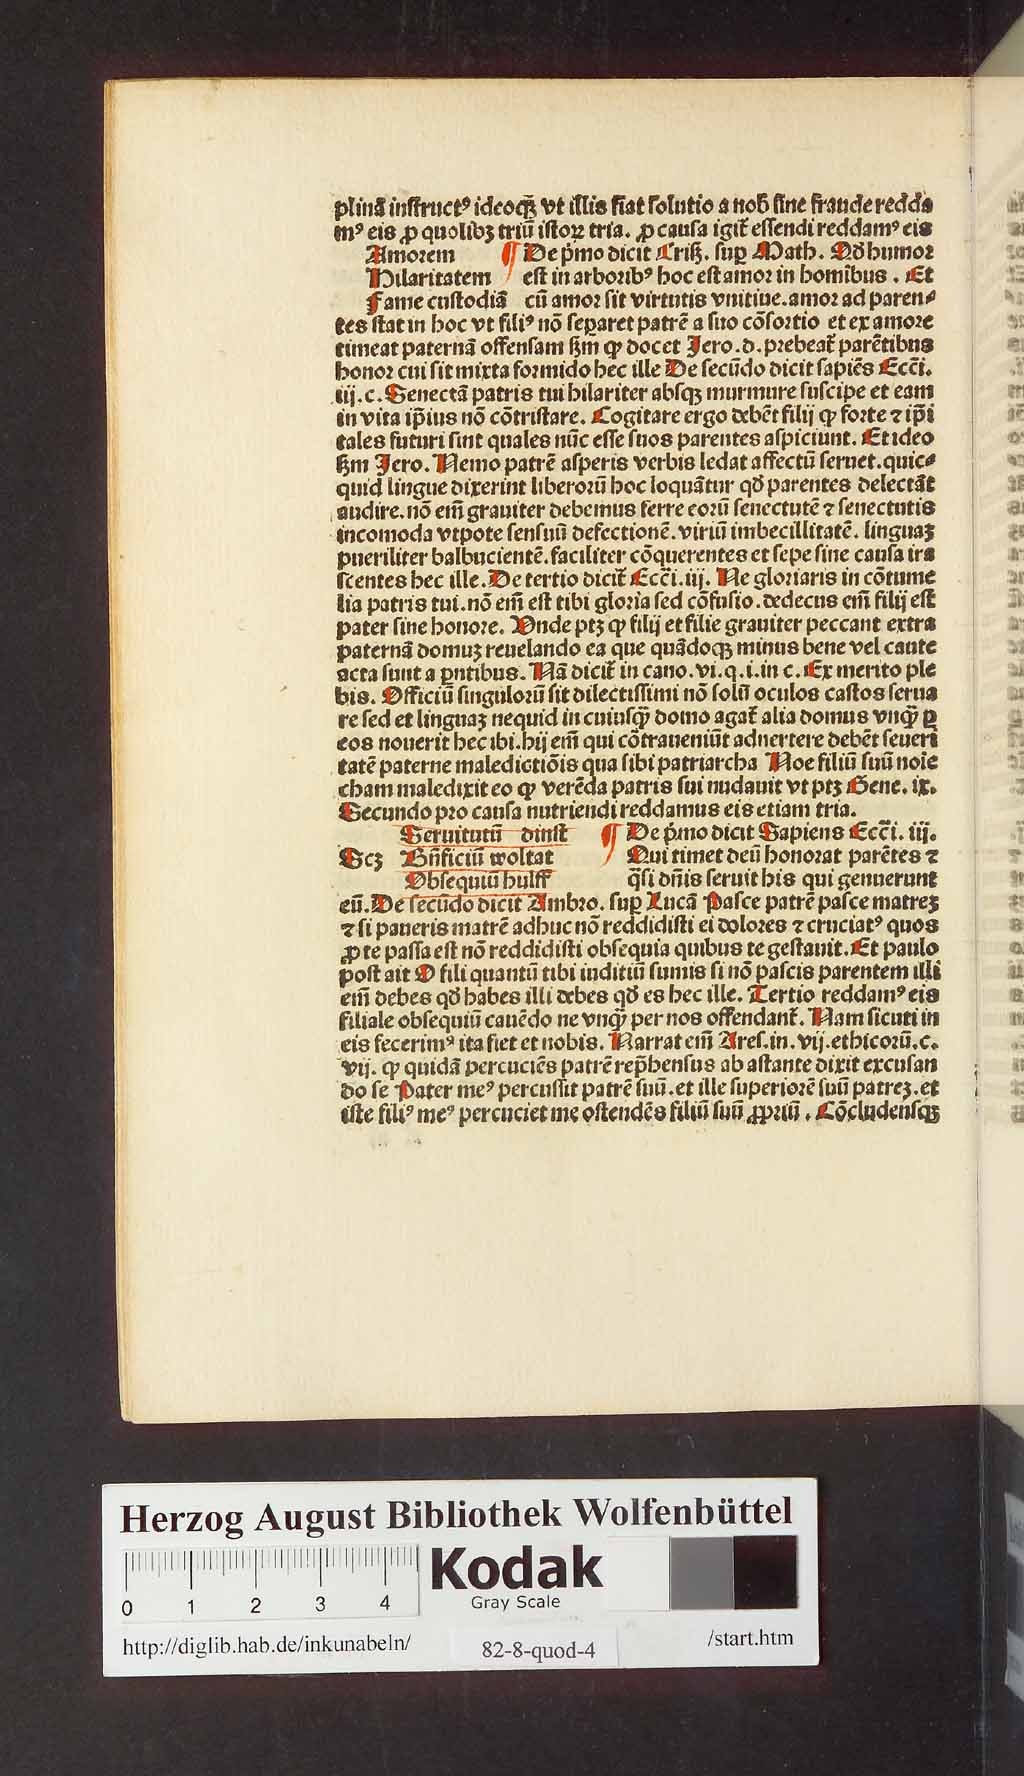 plinã instructꝰ ideoqꝫ vt illis fiat solutio a nob̃ sine fraude redda
mꝰ eis ꝓ quolibꝫ triũ istoꝝ tria. ꝓ causa igit᷑ essendi reddamꝰ eis
Amorem ¶ De p̃mo dicit Criß. suꝑ Math. Qd̃ humor
Hilaritatem est in arboribꝰ hoc est amor in homibus. Et
Fame custodiã cũ amor sit virtutis vnitiue. amor ad paren⸗
tes stat in hoc vt filiꝰ nõ seꝑaret patrẽ a suo cõsortio et ex amore
timeat paternã offensam ẜm ꝙ docet Jero. d. prebeat᷑ parẽtibus
honor cui sit mixta formido hec ille De secũdo dicit sapiẽs Ecci̾.
iij. c. Senectã patris tui hilariter absqꝫ murmure suscipe et eam
in vita ip̃ius nõ cõtristare. Cogitare ergo debẽt filij ꝙ forte ⁊ ip̃i
tales futuri sint quales nũc esse suos parentes aspiciunt. Et ideo
ẜm Jero. Nemo patrẽ asperis verbis ledat affectũ seruet. quic⸗
quid lingue dixerint liberorũ hoc loquãtur qd̃ parentes delectãt
audire. nõ em̃ grauiter debemus ferre eorũ senectutẽ ⁊ senectutis
incomoda vtpote sensuũ defectionẽ. viriũ imbecillitatẽ. linguaꝫ
pueriliter balbucientẽ. faciliter cõquerentes et sepe sine causa ira
scentes hec ille. De tertio dicit᷑ Ecci̾. iij. Ne gloriaris in cõtume
lia patris tui. nõ em̃ est tibi gloria sed cõfusio. dedecus em̃ filij est
pater sine honore. Vnde ptꝫ ꝙ filij et filie grauiter peccant extra
paternã domuꝫ reuelando ea que quãdoqꝫ minus bene vel caute
acta sunt a ꝑntibus. Nã dicit᷑ in cano. vi. q. i. in c. Ex merito ple
bis. Officiũ singulorũ sit dilectissimi nõ solũ oculos castos serua
re sed et linguaꝫ nequid in cuiusqꝫ̃ domo agat᷑ alia domus vnqꝫ̃ ꝑ
eos nouerit hec ibi. hij em̃ qui cõtraueniũt aduertere debẽt seueri
tatẽ paterne maledictiõis qua sibi patriarcha Noe filiũ suũ noĩe
cham maledixit eo ꝙ verẽda patris sui nudauit vt ptꝫ Gene. ix.
Secundo pro causa nutriendi reddamus eis etiam tria.
Seruitutũ dinst ¶ De p̃mo dicit Sapiens Ecci̾. iij.
Scꝫ Bñficiũ woltat Qui timet deũ honorat parẽtes ⁊
Obsequiũ hulff q̃si dñis seruit his qui genuerunt
eũ. De secũdo dicit Ambro. suꝑ Lucã Pasce patrẽ pasce matreꝫ
⁊ si paueris matrẽ adhuc nõ reddidisti ei dolores ⁊ cruciatꝰ quos
ꝓ te passa est nõ reddidisti obsequia quibus te gestauit. Et paulo
post ait O fili quantũ tibi iuditiũ sumis si nõ pascis parentem illi
em̃ debes qd̃ habes illi debes qd̃ es hec ille. Tertio reddamꝰ eis
filiale obsequiũ cauẽdo ne vnqꝫ̃ per nos offendant᷑. Nam sicuti in
eis fecerimꝰ ita fiet et nobis. Narrat em̃ Ares. in. vij. ethicorũ. c.
vij. ꝙ quidã percuciẽs patrẽ rep̃hensus ab astante dixit excusan
do se Pater meꝰ percussit patrẽ suũ. et ille superiorẽ suũ patreꝫ. et
iste filiꝰ meꝰ percuciet me ostendẽs filiũ suũ ꝓpriũ. Cõcludensqꝫ
Herzog August Bibliothek Wolfenbüttel
Kodak
Gray Scale
0 1 2 3 4
http://diglib.hab.de/inkunabeln/
82-8-quod-4
/start.htm